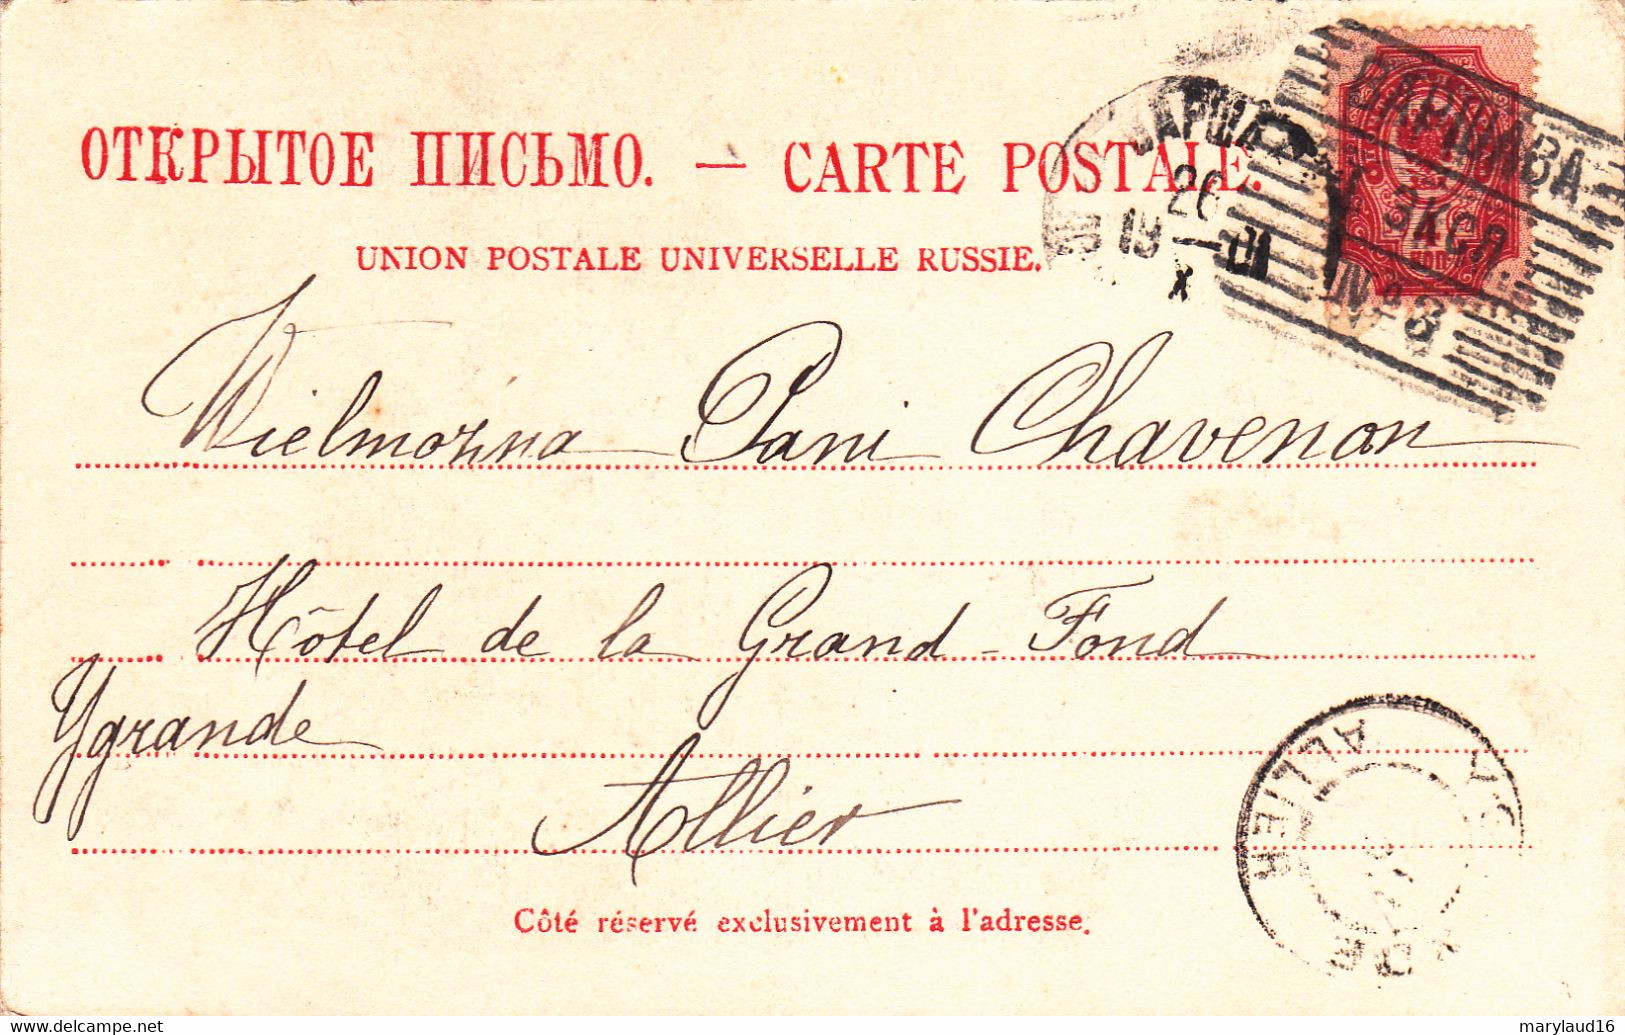 ОТКРЫТОЕ ПИСЬМО. — CARTE POSTALE.
UNION POSTALE UNIVERSELLE RUSSIE.
ВАРШАВА
26
19 X
ВАРШАВА
3 КСП.
№ 3
4
КОП
Wielmożna Pani Chavenon
Hôtel de la Grand-Fond
Ygrande
Allier
ALLIER
Côté réservé exclusivement à l'adresse.
delcampe.net
marylaud16